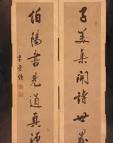 子美集開詩世界
伯陽書見道真源